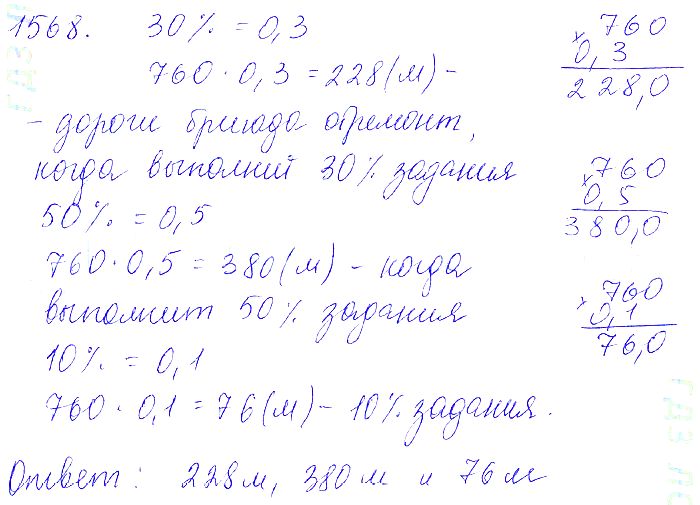 1568. 30% = 0,3
760 · 0,3 = 228(м) -
- дороги бригада отремонт,
когда выполнит 30% задания
50% = 0,5
760 · 0,5 = 380(м) - когда
выполнит 50% задания
10% = 0,1
760 · 0,1 = 76(м) - 10% задания.
Ответ: 228м, 380м и 76м
× 760
0,3
228,0
× 760
0,5
380,0
× 760
0,1
76,0